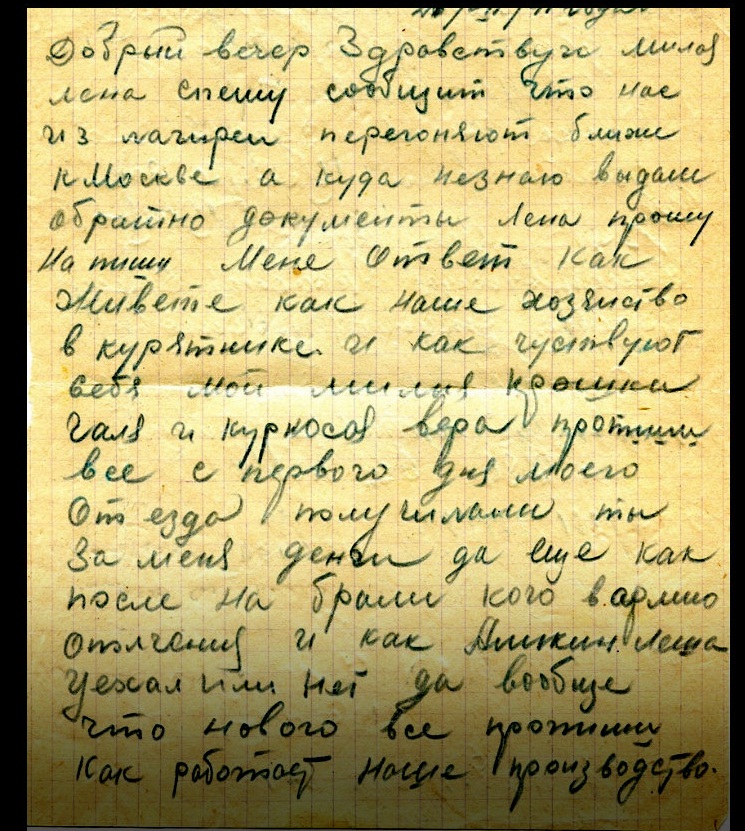 Добрый вечер Здравствуй милая
лена спешу сообщит что нас
из лагирей перегоняют ближе
к Москве а куда незнаю выдали
обратно документы Лена прошу
На пиши Мене Ответ Как
Живете как наше хозяйство
в курятнике и как чуствуют
себя мои милия крошки
Галя и курносая вера пропиши
все с первого дня моего
От езда получилали ты
За меня денги да еще как
после на брали кого в армию
Ополчения и как леша
уехал или нет да вообще
что нового все пропиши
Как работает наше производство.